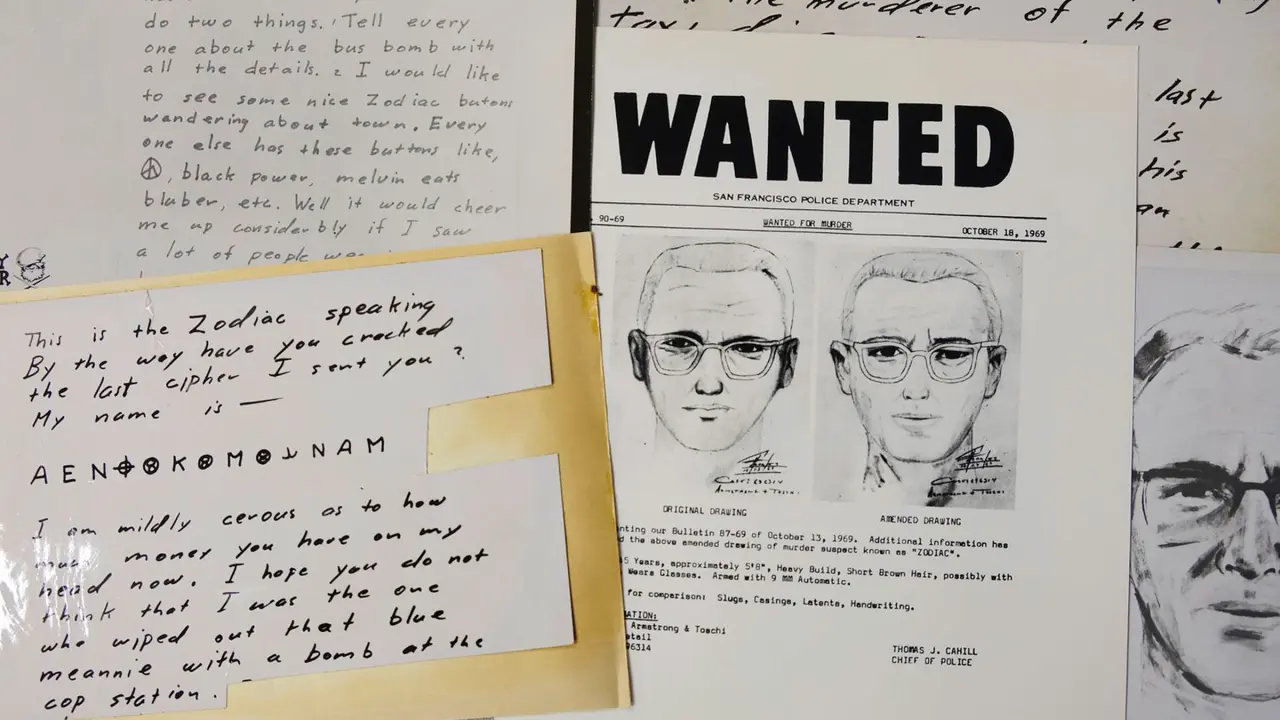 do two things. 1 Tell every
one about the bus bomb with
all the details. 2 I would like
to see some nice Zodiac butons
wandering about town. Every
one else has these buttons like,
☮, black power, melvin eats
bluber, etc. Well it would cheer
me up considerbly if I saw
a lot of people
This is the Zodiac speaking
By the way have you cracked
the last cipher I sent you ?
My name is —
A E N ⌖ ⊗ K ⊗ M ⊗ ⅃ N A M
I am mildly cerous as to how
much money you have on my
head now. I hope you do not
think that I was the one
who wiped out that blue
meannie with a bomb at the
cop station.
murderer of the
last
is
his
an
WANTED
SAN FRANCISCO POLICE DEPARTMENT
90-69 WANTED FOR MURDER OCTOBER 18, 1969
ORIGINAL DRAWING AMENDED DRAWING
nting our Bulletin 87-69 of October 13, 1969. Additional information has
d the above amended drawing of murder suspect known as "ZODIAC".
5 Years, approximately 5'8", Heavy Build, Short Brown Hair, possibly with
Wears Glasses. Armed with 9 MM Automatic.
for comparison: Slugs, Casings, Latents, Handwriting.
ATION:
Armstrong & Toschi
etail
96314
THOMAS J. CAHILL
CHIEF OF POLICE